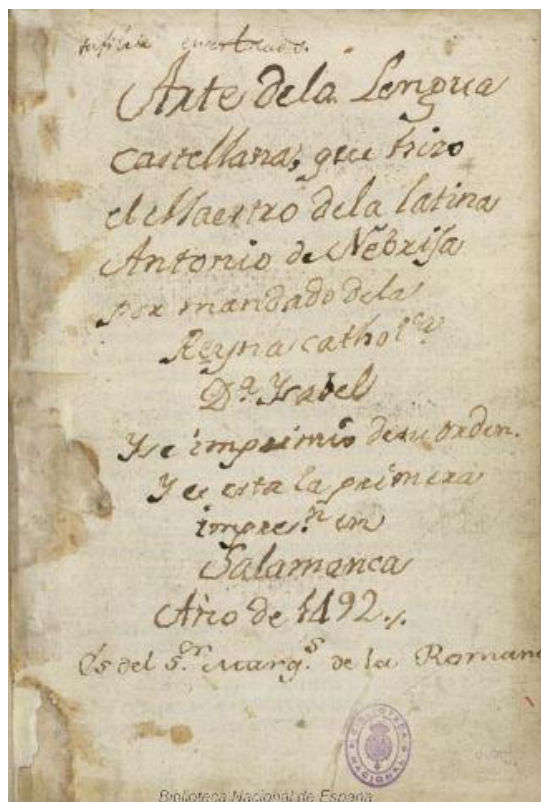 Arte dela Lengua
castellana, que hizo
el Maestro dela latina
Antonio de Nebrija
por mandado dela
Reyna cathol.ca
D.a Ysabel
Y se imprimió de su orden.
Y es esta la primera
impres.n en
Salamanca
Año de 1492.
Es del S.or Marq.s de la Romana
BIBLIOTECA NACIONAL
Biblioteca Nacional de España